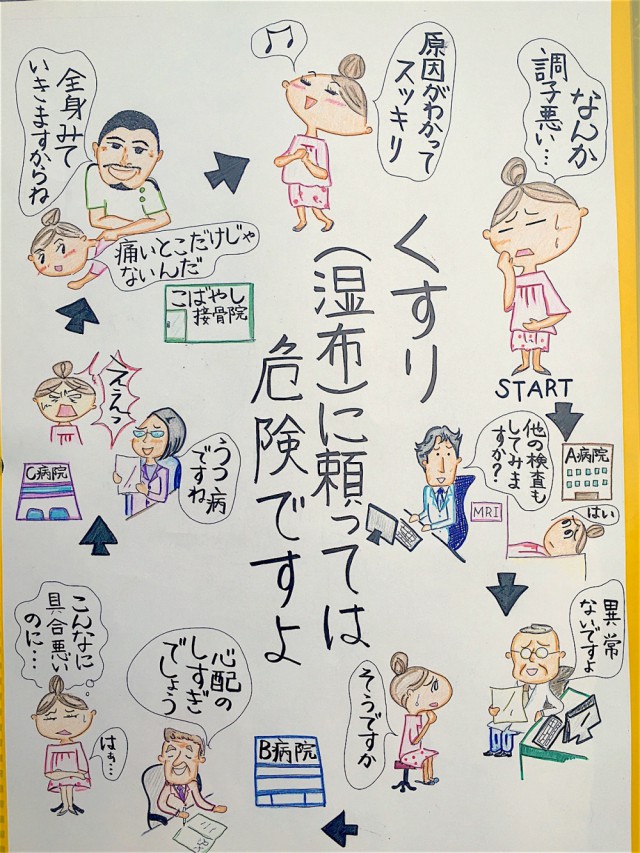 くすり
（湿布）に頼っては
危険ですよ
なんか
調子悪い…
START
A病院
他の検査も
してみま
すか？
MRI
はい
異常
ないですよ
そうですか
B病院
心配の
しすぎ
でしょう
こんなに
具合悪い
のに…
はぁ…
C病院
うつ病
ですね
ええっ
こばやし
接骨院
痛いとこだけじゃ
ないんだ
全身みて
いきますからね
原因がわかって
スッキリ